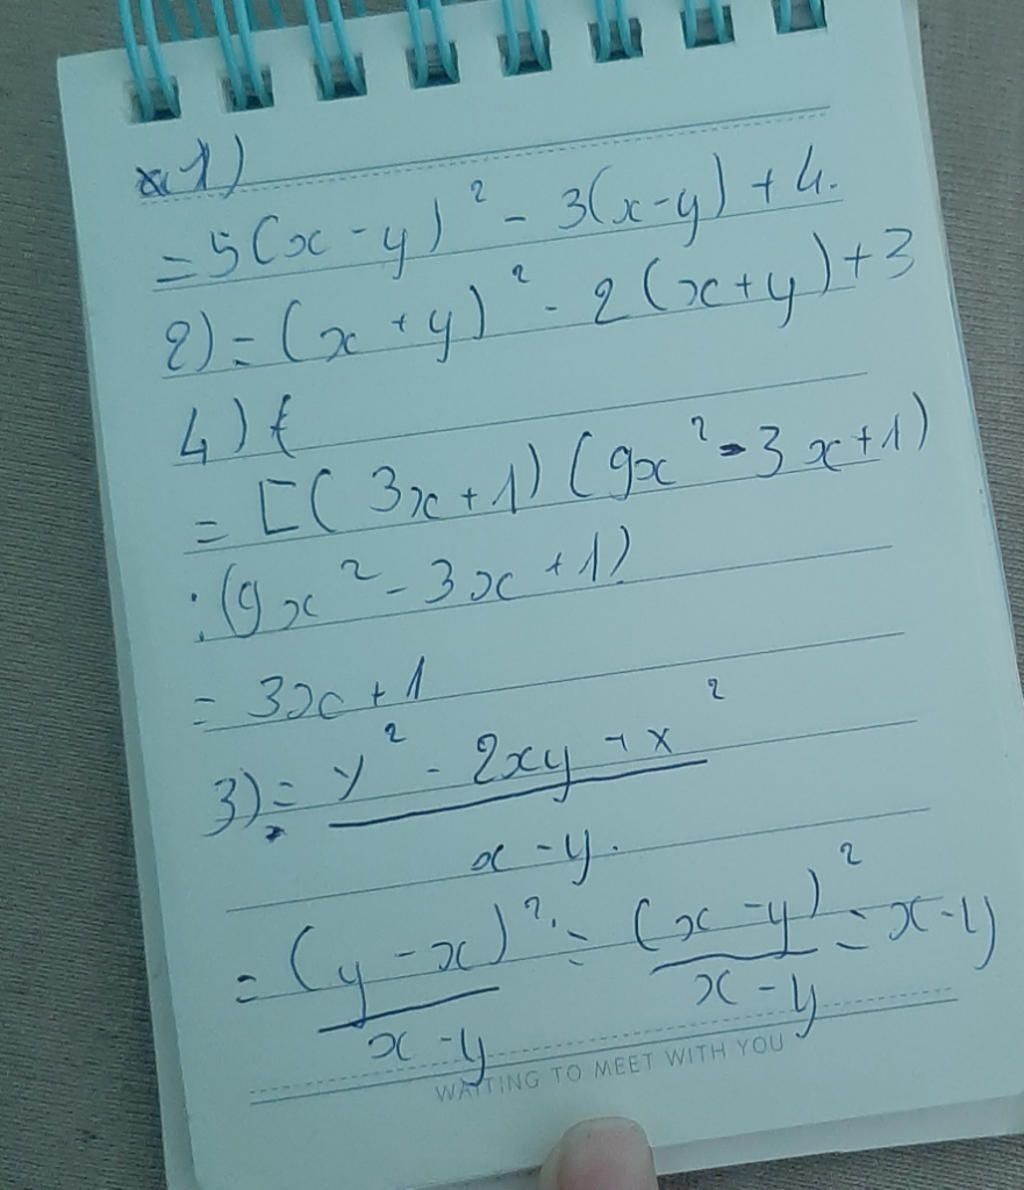 1)
= 5(x - y)² - 3(x-y) + 4.
2) = (x + y)² - 2(x+y) + 3
4) {
= [(3x + 1)(9x² - 3x + 1)
: (9x² - 3x + 1)
= 3x + 1
3) = y² - 2xy + x²
x - y.
= (y - x)² = (x - y)² = x - y
x - y x - y
WAITING TO MEET WITH YOU